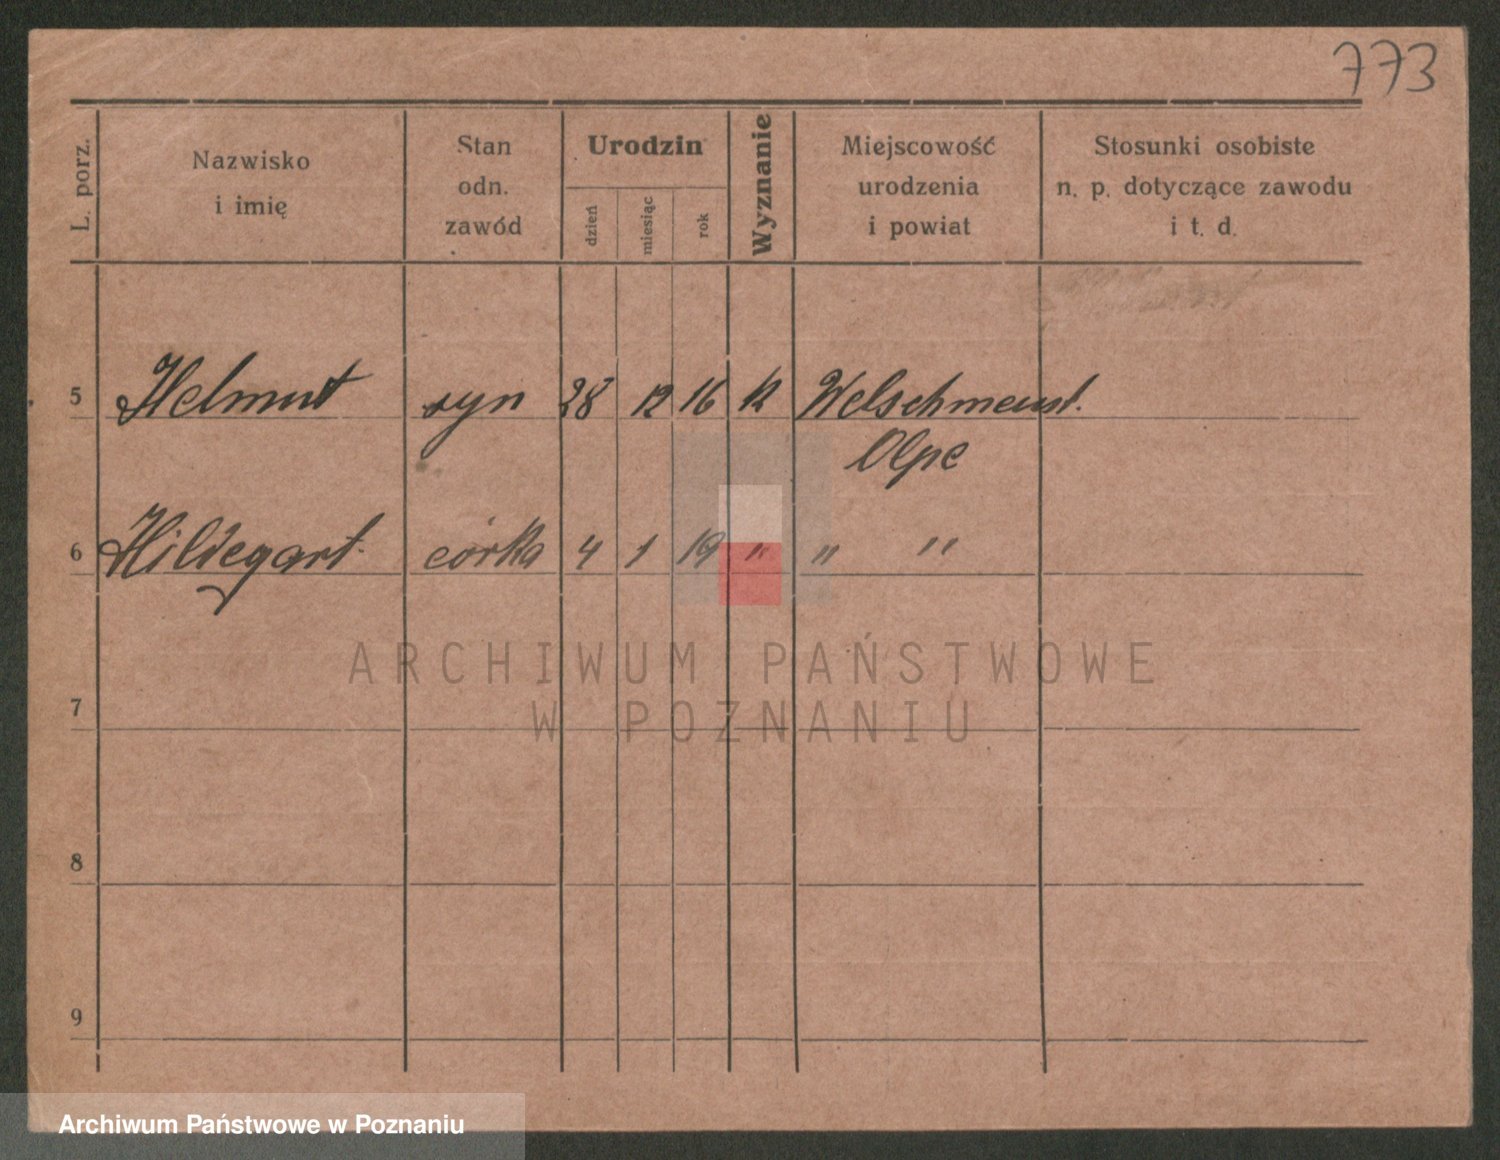 773
L. porz.
Nazwisko
i imię
Stan
odn.
zawód
Urodzin
dzień
miesiąc
rok
Wyznanie
Miejscowość
urodzenia
i powiat
Stosunki osobiste
n. p. dotyczące zawodu
i t. d.
5 Helmut syn 28 12 16 k Welschmenst.
Olpe
6 Hildegart córka 4 1 19 " " "
ARCHIWUM PAŃSTWOWE
W POZNANIU
7
8
9
Archiwum Państwowe w Poznaniu